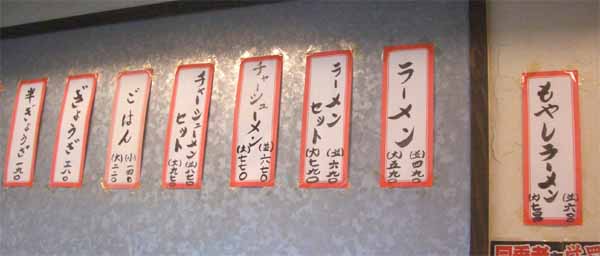 もやしラーメン
(並)
(大)
ラーメン
(並)四九〇
(大)五九〇
ラーメン
セット
(並)六九〇
(大)七九〇
チャーシューメン
(並)六七〇
(大)七七〇
チャーシューメン
セット
(並)八七〇
(大)九七〇
ごはん
(小)一四〇
(大)二二〇
ぎょうざ 三八〇
半ぎょうざ 一九〇